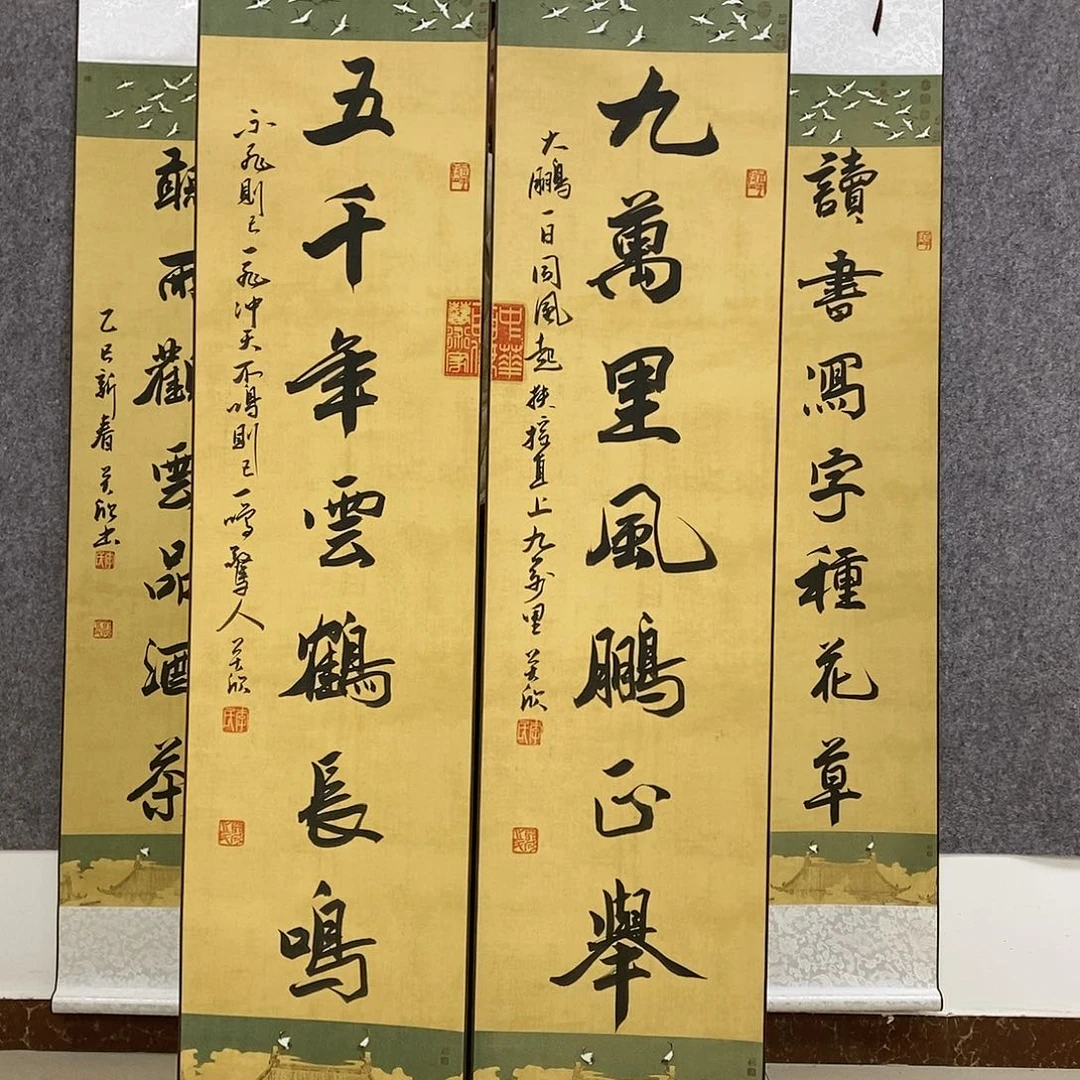 讀書寫字種花草
九萬里風鵬正舉
大鵬一日同風起扶搖直上九萬里 昊欣
五千年雲鶴長鳴
不飛則已一飛冲天不鳴則已一鳴驚人 昊欣
聽雨觀雲品酒茶
乙巳新春 昊欣书
中華